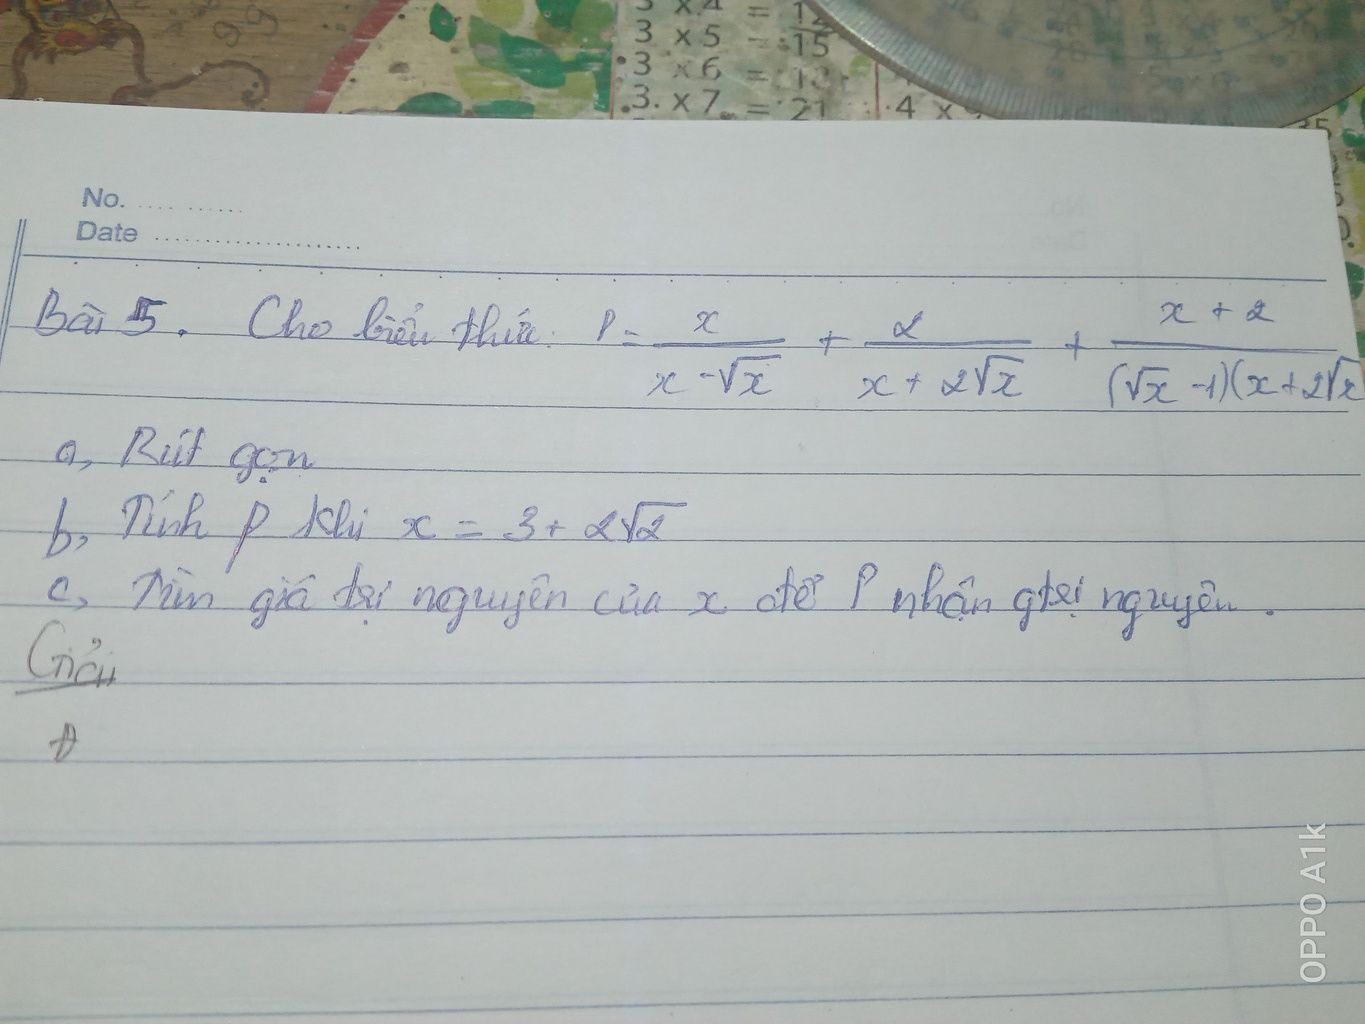 3 x 4 = 12
3 x 5 = 15
3 x 6 = 18
3. x 7 = 21
4 x
No. .... ......
Date .....................
Bài 5. Cho biểu thức: P = x/(x - √x) + 2/(x + 2√x) + (x + 2)/((√x - 1)(x + 2√x
a, Rút gọn
b, Tính P khi x = 3 + 2√2
c, Tìm giá trị nguyên của x để P nhận gtrị nguyên.
Giải
OPPO A1k